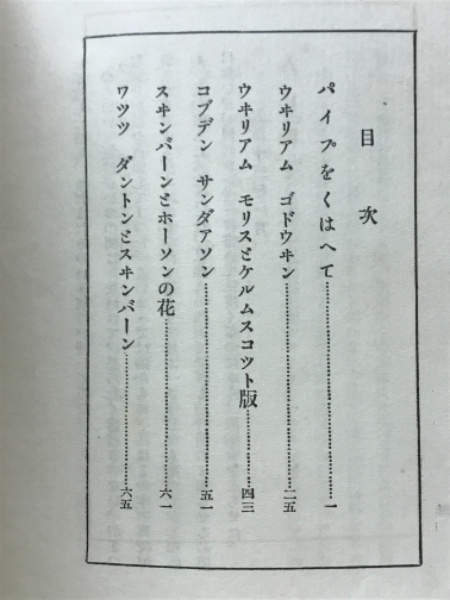 目次
パイプをくはへて……一
ウヰリアム ゴドウヰン……二五
ウヰリアム モリスとケルムスコツト版……四三
コブデン サンダアソン……五一
スヰンバーンとホーソンの花……六一
ワツツ ダントンとスヰンバーン……六五